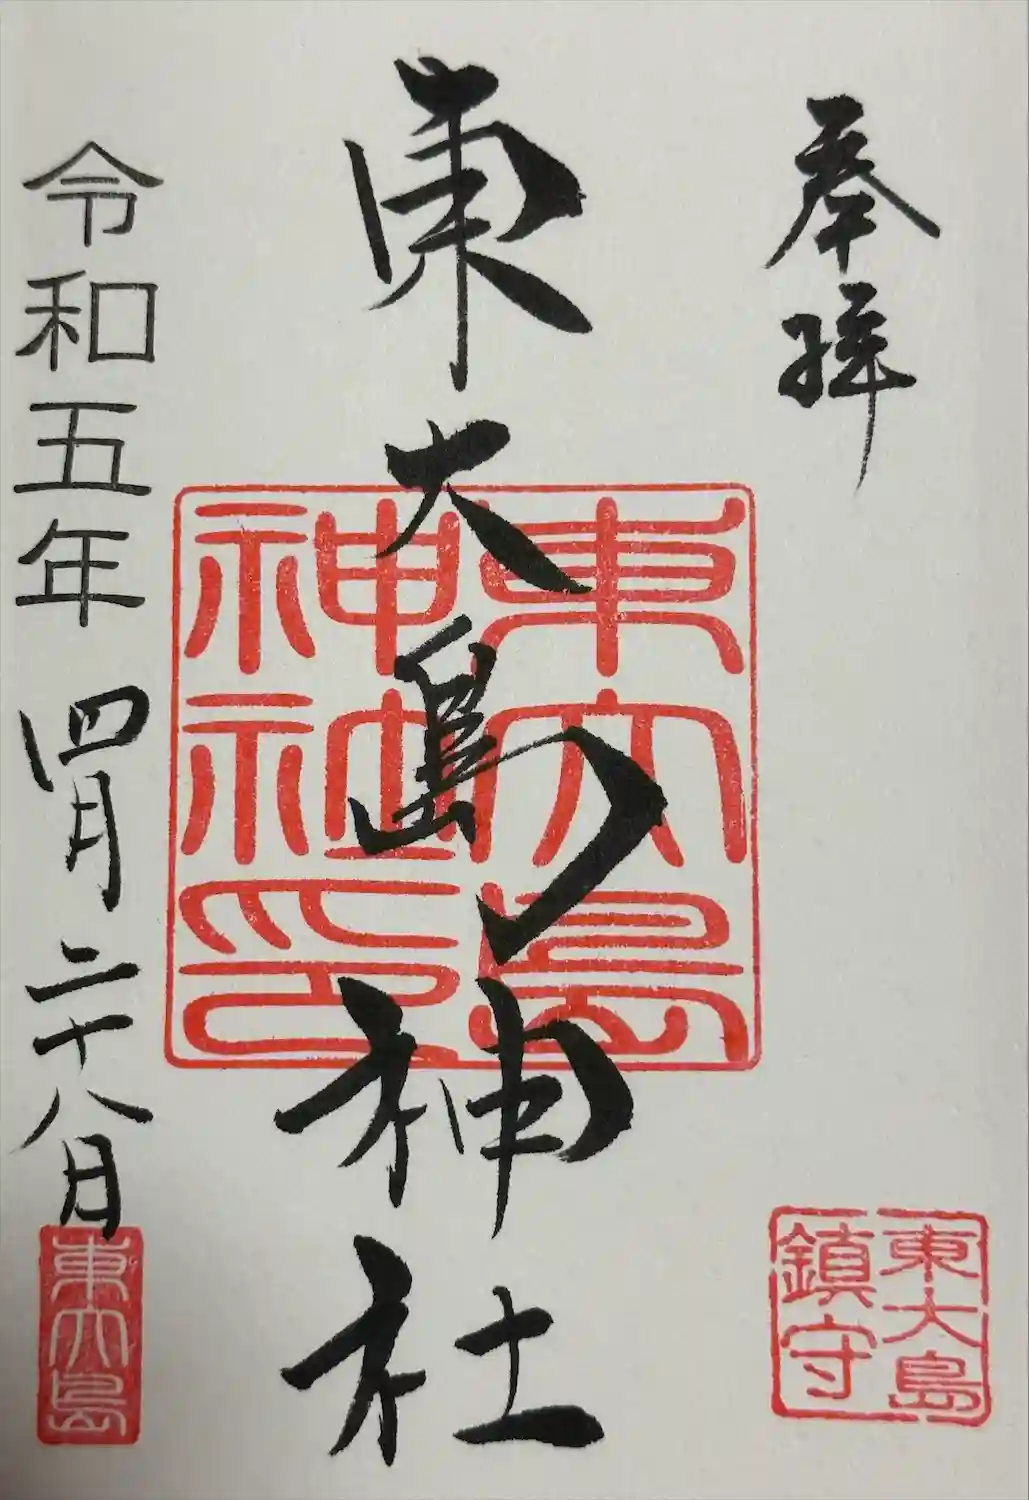 奉拝
東大島神社
東大島
神社印
令和五年四月二十八日
東大島
鎮守
東大島